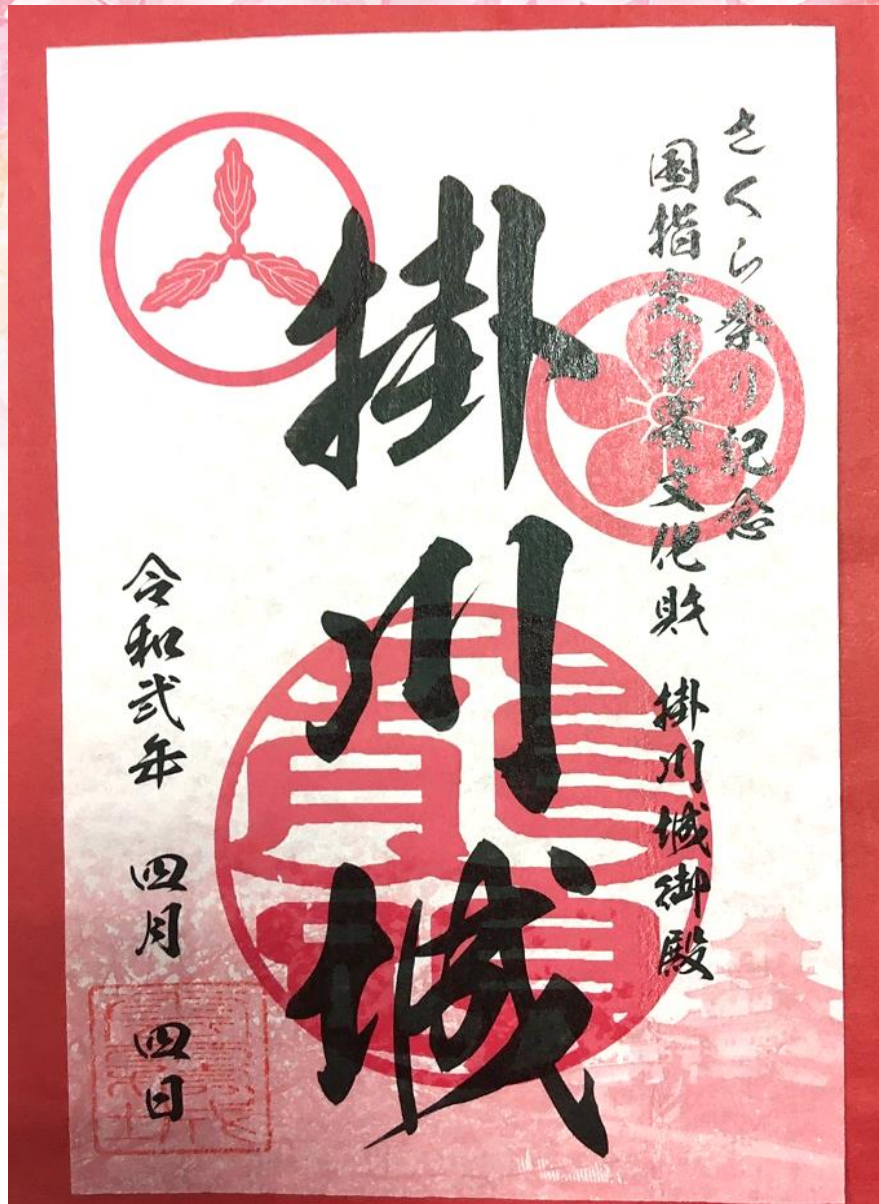 さくら祭り記念
国指定重要文化財 掛川城御殿
掛川城
令和弐年 四月 四日